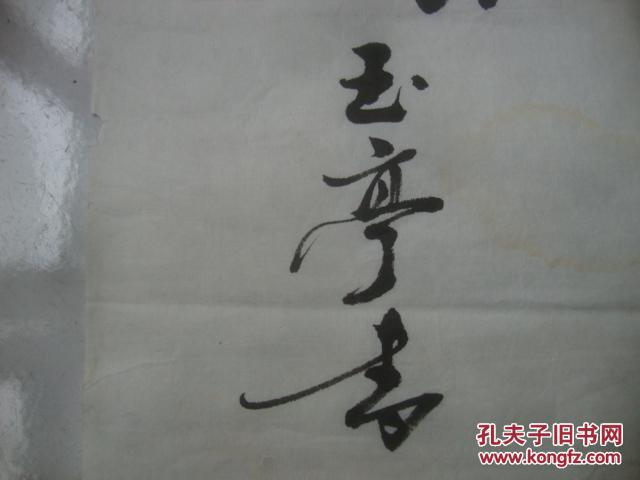 玉亭书
孔夫子旧书网
www.kongfz.com